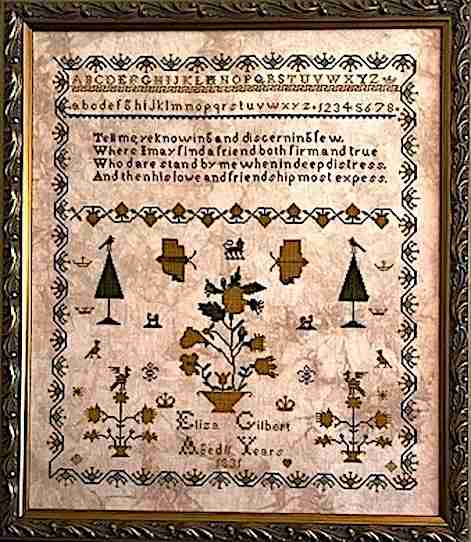 ABCDEFGHIJKLMNOPQRSTUVWXYZ
abcdefghijklmnopqrstuvwxyz. 12345678.
Tell me ye knowing and discerning few.
Where I may find a friend both firm and true
Who dare stand by me when in deep distress.
And then his love and friendship most expess.
Eliza Gilbert
Aged 11 Years
1831